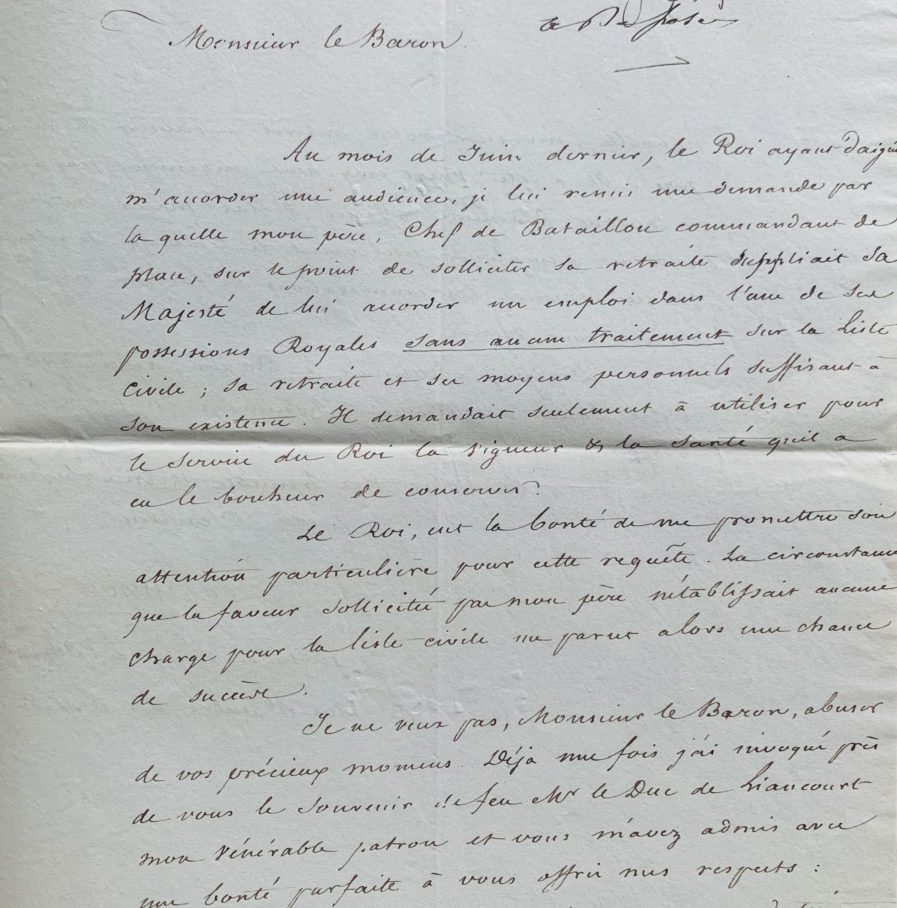 Monsieur le Baron.
Au mois de Juin dernier, le Roi ayant daigné
m'accorder une audience, je lui remis une demande par
la quelle mon père, Chef de Bataillon commandant de
place, sur le point de solliciter sa retraite suppliait Sa
Majesté de lui accorder un emploi dans l'une de ses
possessions Royales sans aucun traitement sur la Liste
civile ; sa retraite et ses moyens personnels suffisant à
son existence. Il demandait seulement à utiliser pour
le service du Roi la vigueur & la santé qu'il a
eu le bonheur de conserver.
Le Roi, eut la bonté de me promettre son
attention particulière pour cette requête. La circonstance
que la faveur sollicitée par mon père n'établissait aucune
charge pour la liste civile me parut alors une chance
de succès.
Je ne veux pas, Monsieur le Baron, abuser
de vos précieux momens. Déja une fois j'ai invoqué près
de vous le souvenir de feu Mr le Duc de Liancourt
mon vénérable patron et vous m'avez admis avec
une bonté parfaite à vous offrir mes respects :